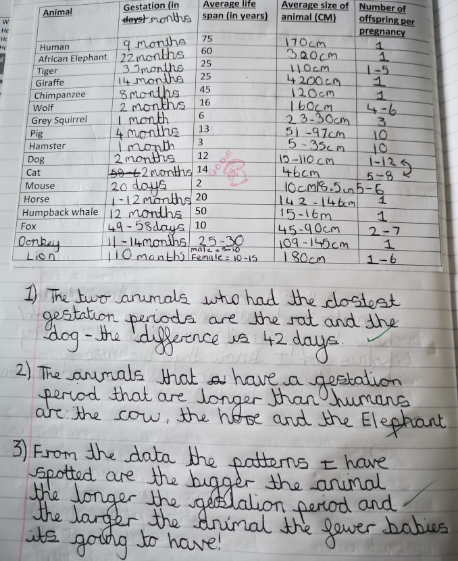 Animal Gestation (in days) months Average life span (in years) Average size of animal (CM) Number of offspring per pregnancy
Human 9 months 75 170cm 1
African Elephant 22 months 60 300cm 1
Tiger months 25 110cm 1-5
Giraffe 14 months 25 4200cm 1
Chimpanzee 8 months 45 120cm 1
Wolf 2 months 16 160cm 4-6
Grey Squirrel 1 month 6 23-30cm 3
Pig 4 months 13 51-97cm 10
Hamster 1 month 3 5-35cm 10
Dog 2 months 12 15-110cm 1-12
Cat 2 months 14 46cm 5-8
Mouse 20 days 2 10cm 5-6
Horse 1-12 months 20 142-146cm 1
Humpback whale 12 months 50 15-16m 1
Fox 49-58days 10 45-90cm 2-7
Donkey 11-14months 25-30 109-145cm 1
Lion 110 months Female = 10-15 180cm 1-6
1) The two animals who had the clostest
gestation periods are the rat and the
dog - the difference is 42 days.
2) The animals that have a gestation
period that are longer than humans
are: the cow, the and the Elephant
3) From the data the patterns I have
spotted are the bigger the animal
the longer the gestation period and
the larger the animal the fewer babies
its going to have!